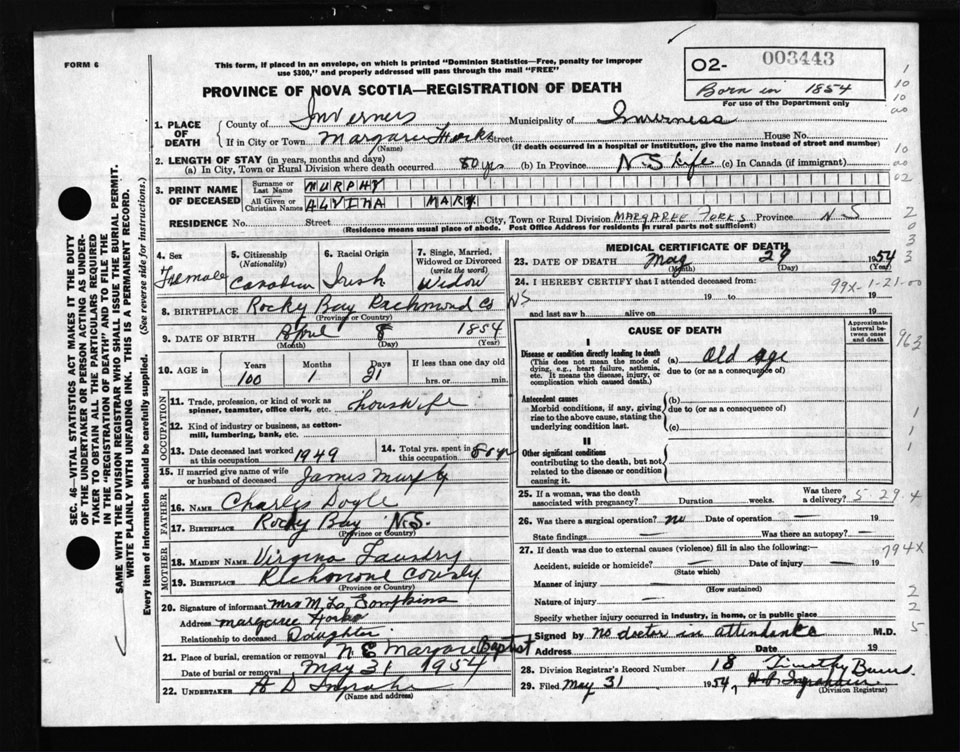 FORM 6
This form, if placed in an envelope, on which is printed "Dominion Statistics—Free, penalty for improper
use $300," and properly addressed will pass through the mail "FREE"
PROVINCE OF NOVA SCOTIA—REGISTRATION OF DEATH
O2- 003443
Born in 1854
For use of the Department only
1. PLACE OF DEATH
County of Inverness Municipality of Inverness
If in City or Town Margaree Forks Street House No.
(Name) (If death occurred in a hospital or institution, give the name instead of street and number)
2. LENGTH OF STAY (in years, months and days)
(a) In City, Town or Rural Division where death occurred 80 yrs (b) In Province N S Life (c) In Canada (if immigrant)
3. PRINT NAME OF DECEASED
Surname or Last Name MURPHY
All Given or Christian Names ALVINA MARY
RESIDENCE No. Street City, Town or Rural Division MARGAREE FORKS Province N S
(Residence means usual place of abode. Post Office Address for residents in rural parts not sufficient)
4. Sex
Female
5. Citizenship (Nationality)
Canadian
6. Racial Origin
Irish
7. Single, Married, Widowed or Divorced (write the word)
Widow
8. BIRTHPLACE Rocky Bay Richmond Co
(Province or Country)
9. DATE OF BIRTH April 8 1854
(Month) (Day) (Year)
10. AGE in Years Months Days If less than one day old
100 1 21 hrs. or min.
OCCUPATION
11. Trade, profession, or kind of work as spinner, teamster, office clerk, etc. houswife
12. Kind of industry or business, as cotton-mill, lumbering, bank, etc.
13. Date deceased last worked at this occupation 1949
14. Total yrs. spent in this occupation 80 yr
15. If married give name of wife or husband of deceased James Murphy
FATHER
16. NAME Charles Doyle
17. BIRTHPLACE Rocky Bay N.S.
(Province or Country)
MOTHER
18. MAIDEN NAME Virgina Landry
19. BIRTHPLACE Richmond County
(Province or Country)
20. Signature of informant Mrs M Tompkins
Address Margaree Forks
Relationship to deceased Daughter
21. Place of burial, cremation or removal N E Margaree Baptist
Date of burial or removal May 31 1954
22. UNDERTAKER A D Ingraham
(Name and address)
MEDICAL CERTIFICATE OF DEATH
23. DATE OF DEATH May 29 1954
(Month) (Day)
24. I HEREBY CERTIFY that I attended deceased from:
99X-1-21-00
NS 19 to 19
and last saw h alive on 19
CAUSE OF DEATH
Approximate interval between onset and death
Disease or condition directly leading to death (a) Old age
(This does not mean the mode of dying, e.g., heart failure, asthenia, etc. It means the disease, injury, or complication which caused death.)
due to (or as a consequence of)
Antecedent causes (b)
Morbid conditions, if any, giving rise to the above cause, stating the underlying condition last.
due to (or as a consequence of)
(c)
II
Other significant conditions
contributing to the death, but not related to the disease or condition causing it.
25. If a woman, was the death associated with pregnancy? Duration weeks. Was there a delivery? 5-29.4
26. Was there a surgical operation? no Date of operation 19
State findings Was there an autopsy?
27. If death was due to external causes (violence) fill in also the following:—
794X
Accident, suicide or homicide? Date of injury 19
(State which)
Manner of injury
(How sustained)
Nature of injury
Specify whether injury occurred in industry, in home, or in public place
Signed by No doctor in attendance M.D.
Address Date 19
28. Division Registrar's Record Number 18
29. Filed May 31 1954
(Division Registrar)
SEC. 46—VITAL STATISTICS ACT MAKES IT THE DUTY
OF THE UNDERTAKER OR PERSON ACTING AS UNDER-
TAKER TO OBTAIN ALL THE PARTICULARS REQUIRED
IN THE "REGISTRATION OF DEATH" AND TO FILE THE
SAME WITH THE DIVISION REGISTRAR WHO SHALL ISSUE THE BURIAL PERMIT.
WRITE PLAINLY WITH UNFADING INK. THIS IS A PERMANENT RECORD.
Every item of information should be carefully supplied. (See reverse side for instructions.)
1
10
10
00
10
00
02
2
0
3
3
963
1
1
1
2
2
5